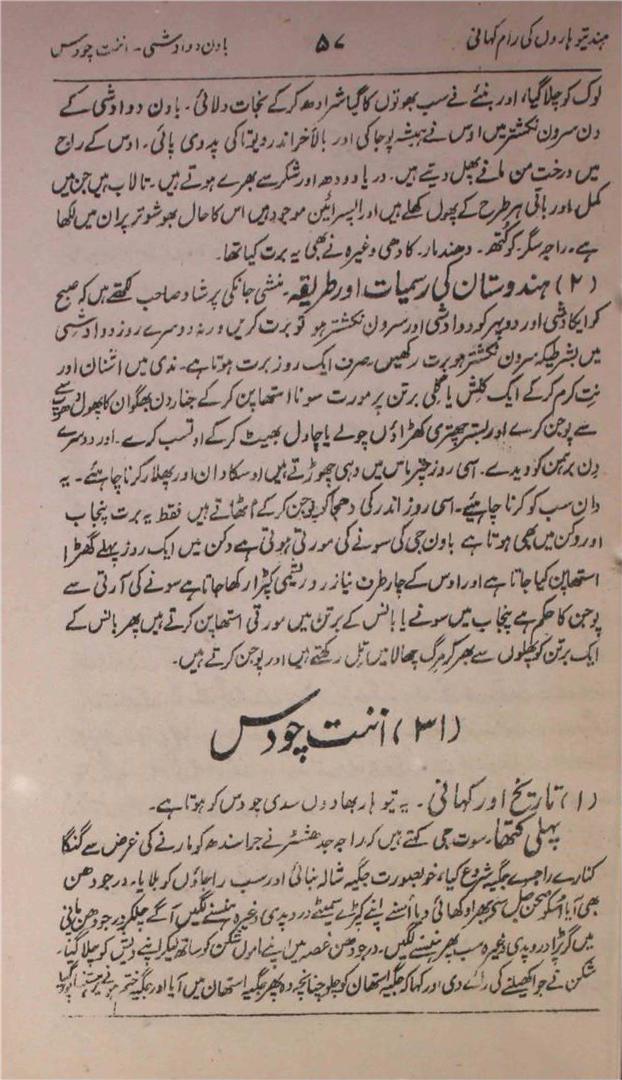 ہندتیوہاروں کی رام کہانی ۵۷ باون دوادشی۔ اننت چودس
لوک کو چلا گیا، اور بنئے نے سب بھوتوں کا گیا شرادھ کرکے نجات دلائی۔ باون دوادشی کے
دن سرون نکشتر میں اوس نے ہمیشہ پوجا کی اور بالآخر اندر دیوتا کی پدوی پائی۔ اوس کے راج
میں درخت من مانے پھل دیتے ہیں۔ دریا دودھ اور شکر سے بھرے ہوتے ہیں۔ تالاب ہیں جن میں
کمل اور باقی ہر طرح کے پھول کھلے ہیں اور اپسرائیں موجود ہیں اس کا حال بھوشوتر پران میں لکھا
ہے۔ راجہ سگر۔ ککتھ۔ دھندمار۔ گادھی وغیرہ نے بھی یہ برت کیا تھا۔
(۲) ہندوستان کی رسمیات اور طریقہ۔ منشی جانکی پرشاد صاحب لکھتے ہیں کہ صبح
کو ایکادشی اور دوپہر کو دوادشی اور سرون نکشتر ہو تو برت کریں ورنہ دوسرے روز دوادشی
میں بشرطیکہ سرون نکشتر ہو برت رکھیں، صرف ایک روز برت ہوتا ہے۔ ندی میں اشنان اور
نت کرم کرکے ایک کلش یا گلی برتن پر مورت سونا استھاپن کرکے جناردن بھگوان کا پھول دھوپ
سے پوجن کرے اور بستر چھتری کھڑاؤں چولے یا چاول بھینٹ کرکے اوتسب کرے۔ اور دوسرے
دن برہمن کو دیدے۔ اسی روز چترماس میں دہی چھوڑتے ہیں اوسکا دان اور پھلار کرنا چاہئے۔ یہ
دان سب کو کرنا چاہئے۔ اسی روز اندر کی دھجا کو پوجن کرکے اُٹھاتے ہیں فقط یہ برت پنجاب
اور دکن میں بھی ہوتا ہے باون جی کی سونے کی مورتی ہوتی ہے دکن میں ایک روز پہلے گھڑا
استھاپن کیا جاتا ہے اور اوس کے چار طرف نیاز زرد ریشمی کپڑا رکھا جاتا ہے سونے کی آرتی سے
پوجن کا حکم ہے پنجاب میں سونے یا بانس کے برتن میں مورتی استھاپن کرتے ہیں پھر بانس کے
ایک برتن کو پھلوں سے بھر کر مرگ چھالا میں تل رکھتے ہیں اور پوجن کرتے ہیں۔
(۳۱) اننت چودس
(۱) تاریخ اور کہانی۔ یہ تیوہار بھادوں سدی چودس کو ہوتا ہے۔
پہلی کتھا۔ سوت جی کہتے ہیں کہ راجہ جدھشٹر نے جراسندھ کو مارنے کی غرض سے گنگا
کنارے راجسے جگیہ شروع کیا، خوبصورت جگیہ شالہ بنائی اور سب راجاؤں کو بلایا۔ درجودھن
بھی آیا اُسکو صحن جل سے بھرا دکھائی دیا اُسنے اپنے کپڑے سمیٹے دروپدی وغیرہ ہنسنے لگیں آگے چلکر درجودھن پانی
میں گر پڑا دروپدی وغیرہ سب پھر ہنسنے لگیں۔ درجودھن غصہ میں اپنے ماموں شکن کو ساتھ لیکر اپنے دیش کو چلا گیا۔
شکن نے جوا کھیلنے کی رائے دی اور کہا کہ جگیہ استھان کو چلو چنانچہ وہ پھر جگیہ استھان میں آیا اور جگیہ ختم ہونے